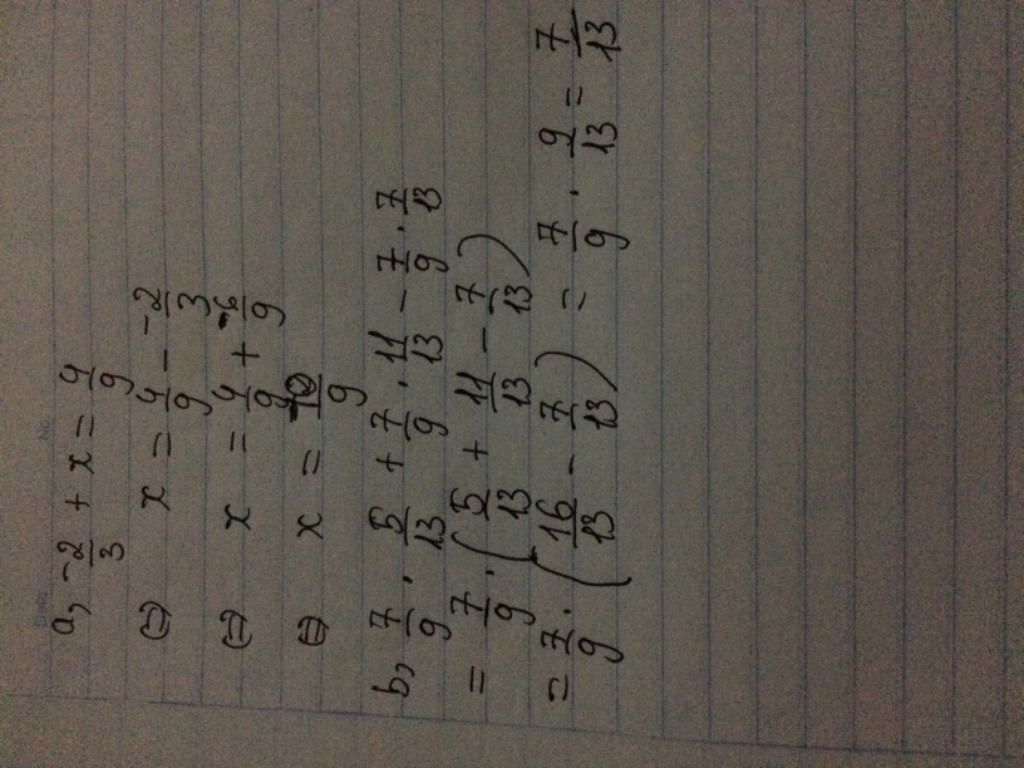 a, -2/3 + x = 4/9
⇔ x = 4/9 - -2/3
⇔ x = 4/9 + 6/9
⇔ x = 10/9
b, 7/9 . 5/13 + 7/9 . 11/13 - 7/9 . 7/13
= 7/9 . ( 5/13 + 11/13 - 7/13 )
= 7/9 . ( 16/13 - 7/13 ) = 7/9 . 9/13 = 7/13